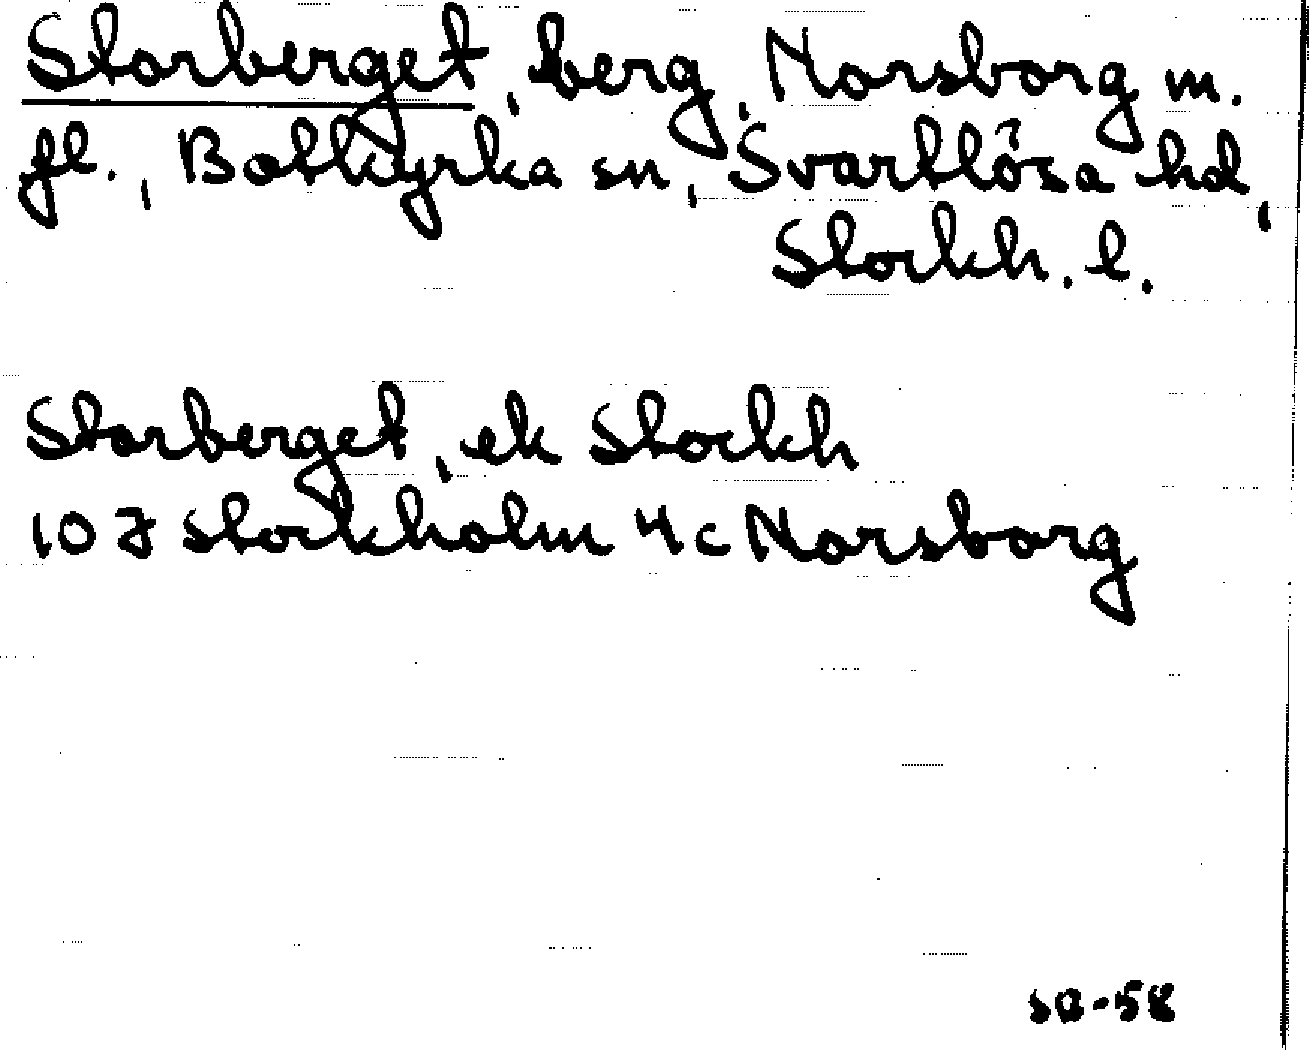 Storberget, berg, Norsborg m.
fl., Botkyrka sn, Svartlösa hd,
Stockh. l.
Storberget, ek Stockh
10 J Stockholm 4c Norsborg